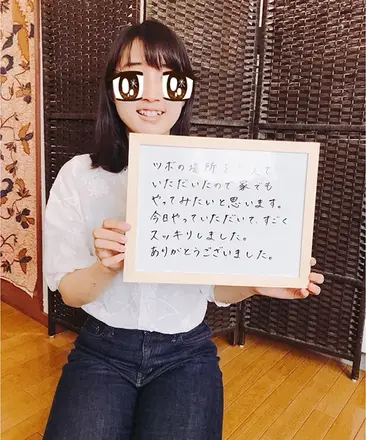 ツボの場所を教えて
いただいたので家でも
やってみたいと思います。
今日やっていただいて、すごく
スッキリしました。
ありがとうございました。